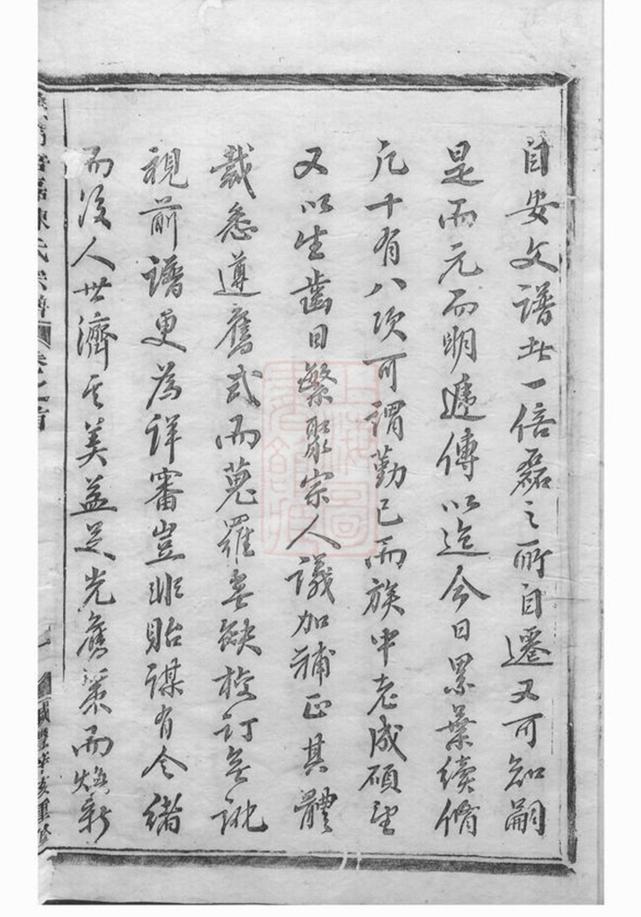 自安文譜其一倍磊之所自遷又可知嗣
是而元而明遞傳以迄今日累葉續脩
凡十有八次可謂勤已而族中老成碩望
又以生齒日繁聚宗人議加補正其體
裁悉遵舊式而蒐羅無缺校訂無訛
視前譜更為詳審豈非貽謀有令緒
而後人世濟其美益足光舊業而煥新
陳氏宗譜 卷之首
咸豐辛亥重修
上海圖書館藏